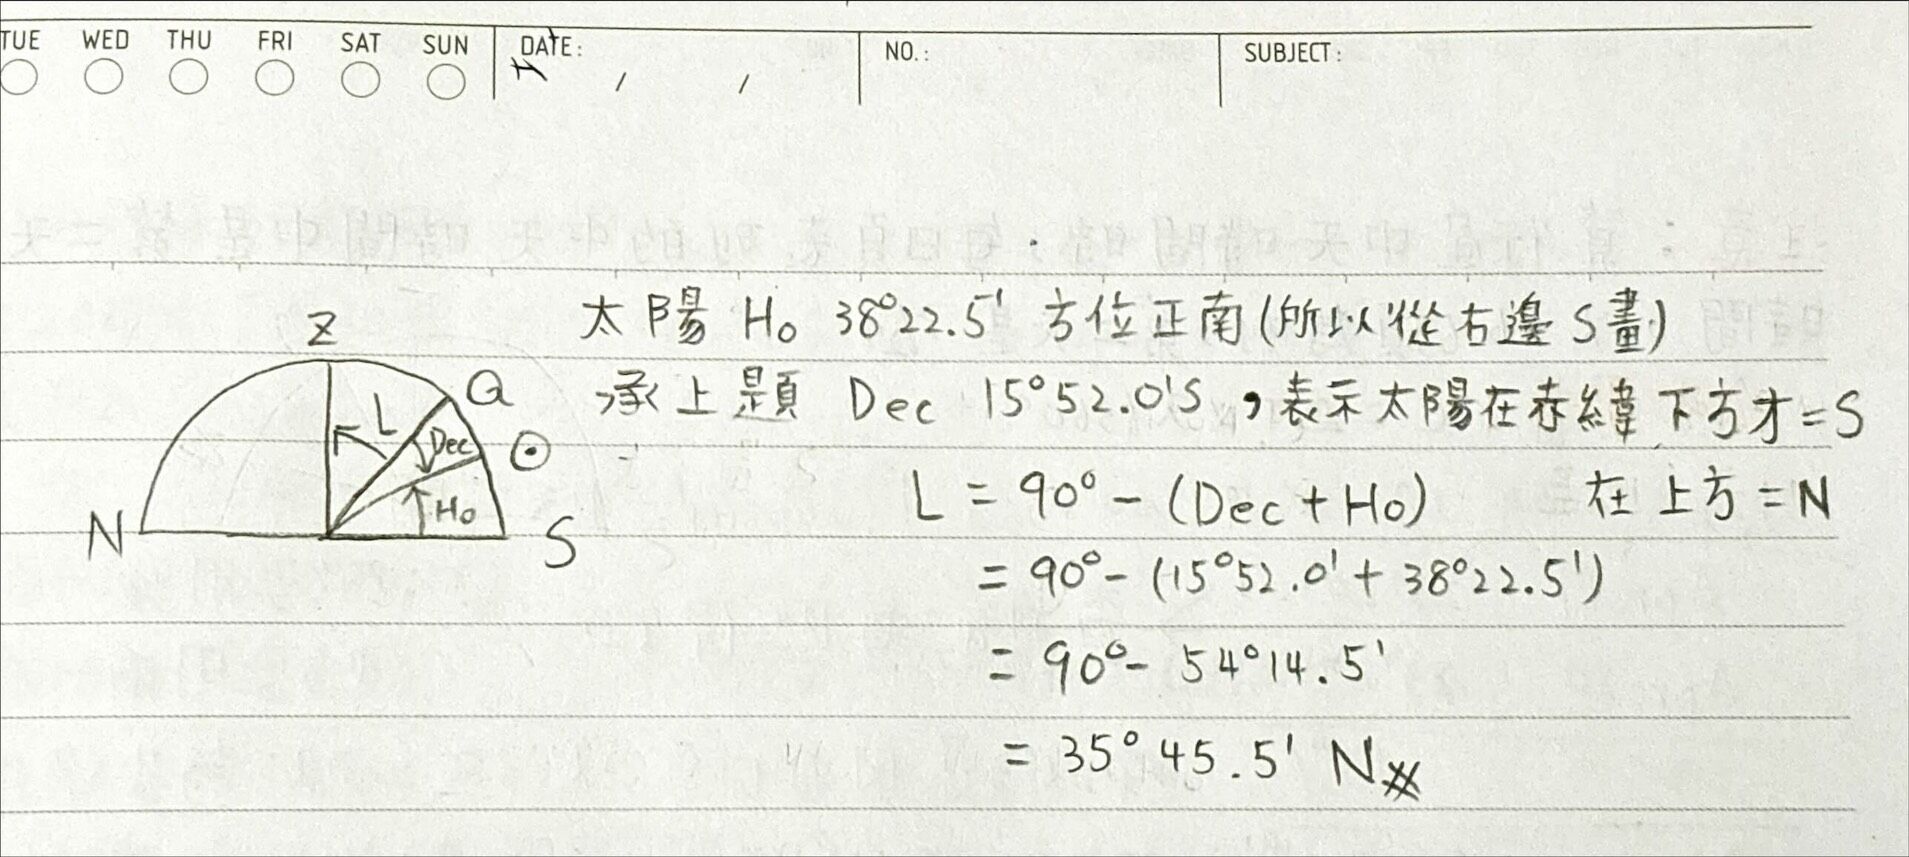 TUE WED THU FRI SAT SUN DATE: / / NO.: SUBJECT:
太陽 Ho 38°22.5' 方位正南(所以從右邊S畫)
承上題 Dec 15°52.0'S，表示太陽在赤緯下方才=S
L = 90° - (Dec + Ho) 在上方=N
= 90° - (15°52.0' + 38°22.5')
= 90° - 54°14.5'
= 35°45.5' N
Z
Q
L
Dec
Ho
N
S